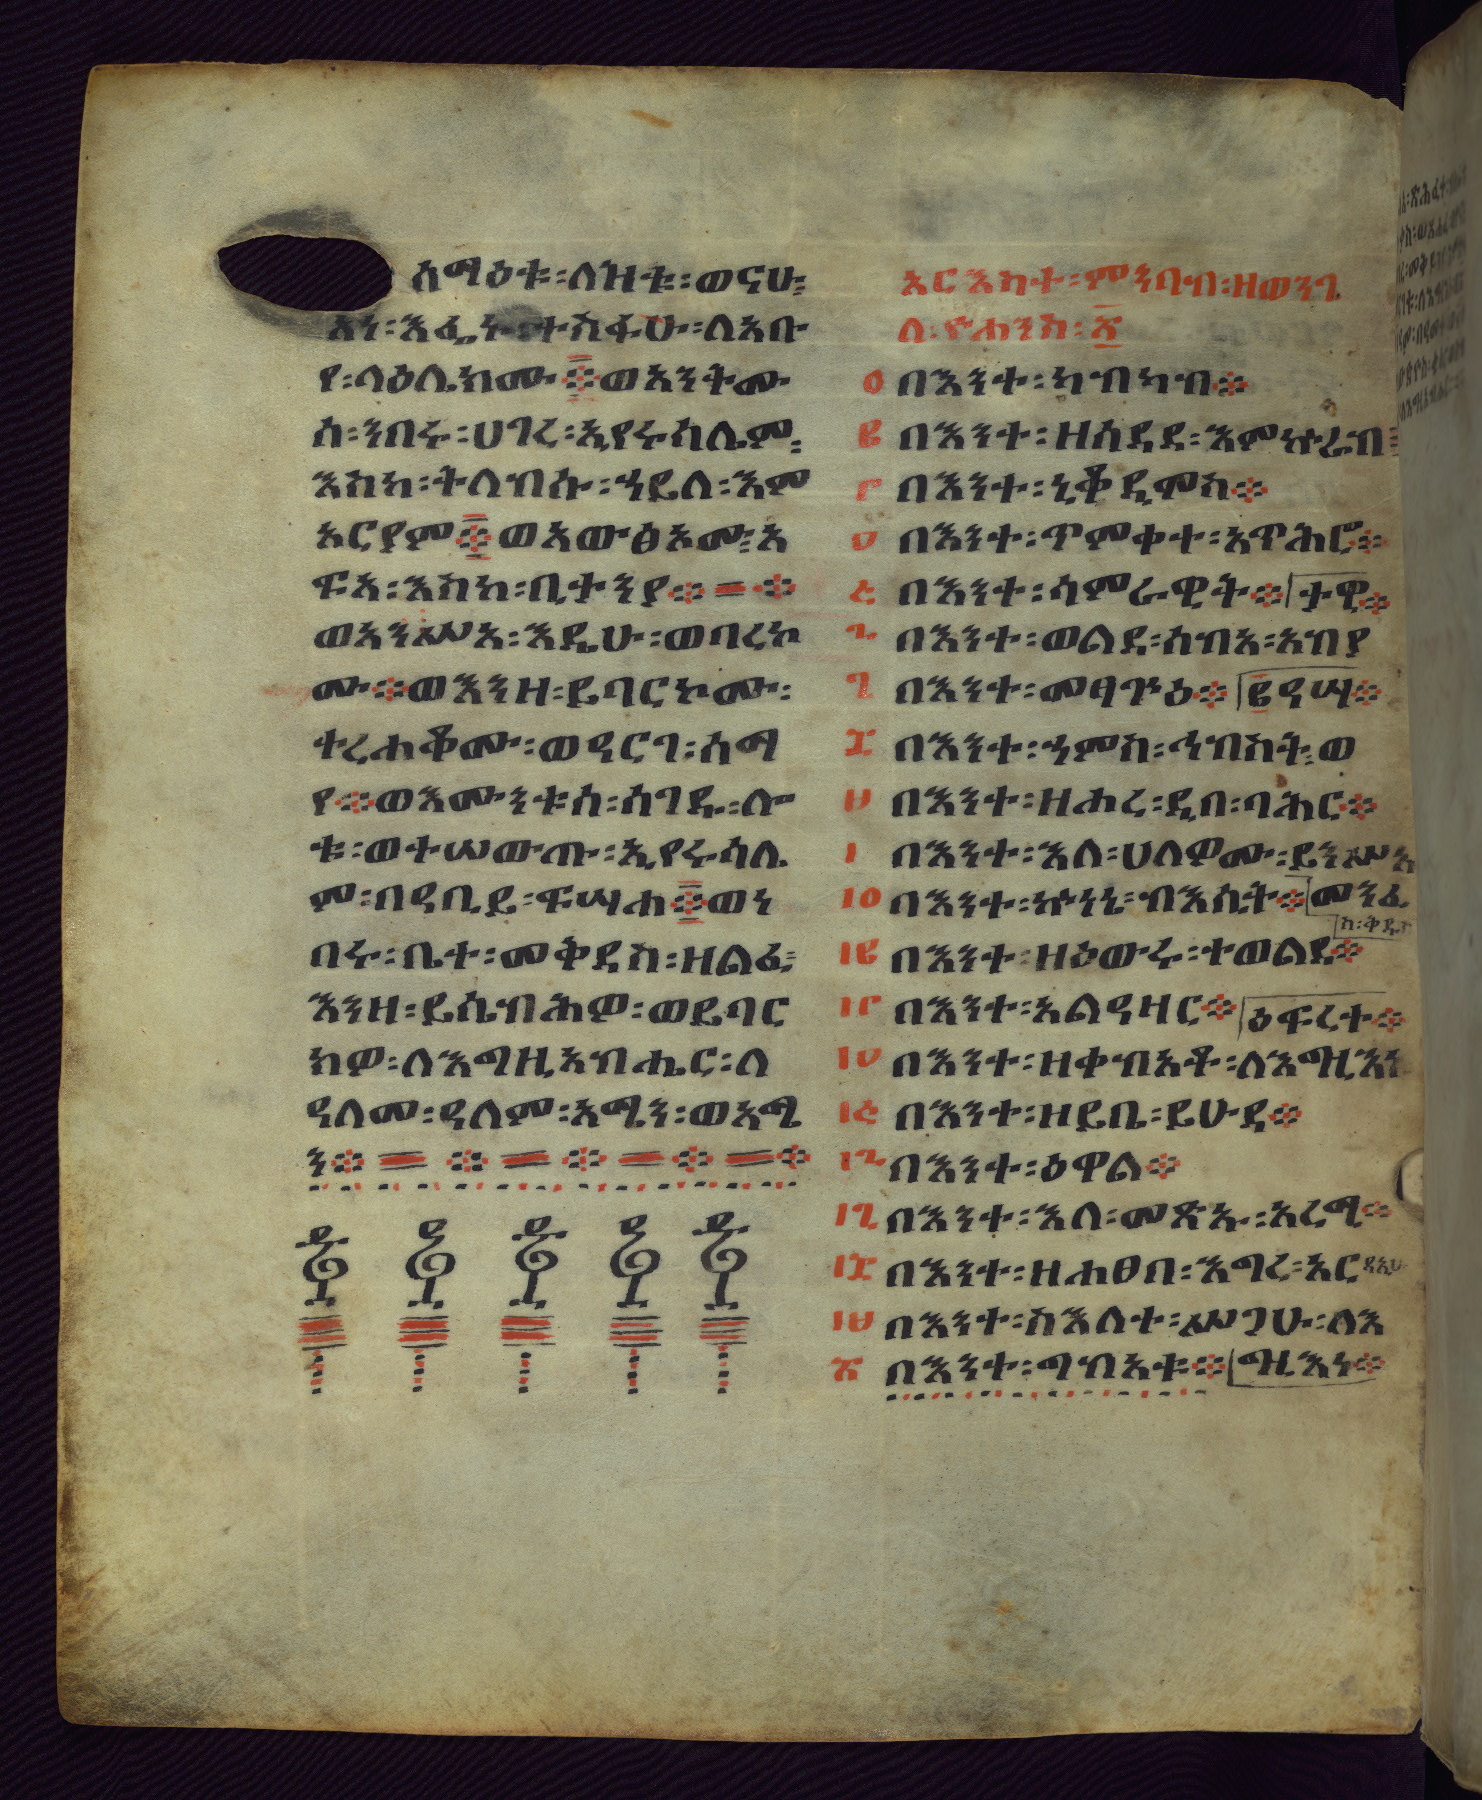 ስማዕቱ፡ለዝቱ፡ወናሁ፡
አነ፡እፌኑ፡ተስፋሁ፡ለአቡ
የ፡ላዕሌክሙ፨ወአንትሙ
ሰ፡ንበሩ፡ሀገረ፡ኢየሩሳሌም፡
እስከ፡ትለብሱ፡ኃይለ፡እም
አርያም፨ወአውፅኦሙ፡አ
ፍአ፡እስከ፡ቢታንያ፨=፨
ወአንሥአ፡እዴሁ፡ወባረኮ
ሙ፨ወእንዘ፡ይባርኮሙ፡
ተረሐቆሙ፡ወዓርገ፡ሰማ
የ፨ወእሙንቱሰ፡ሰገዱ፡ሎ
ቱ፡ወተሠውጡ፡ኢየሩሳሌ
ም፡በዓቢይ፡ፍሣሐ፨ወነ
በሩ፡ቤተ፡መቅደስ፡ዘልፈ፡
እንዘ፡ይሴብሕዎ፡ወይባር
ክዎ፡ለእግዚአብሔር፡ለ
ዓለመ፡ዓለም፡አሜን፡ወአሜ
ን፨=፨=፨=፨=፨
አርእስተ፡ምንባብ፡ዘወንጌ
ል፡ዮሐንስ፡፳
፩ በእንተ፡ከብካብ፨
፪ በእንተ፡ዘሰደደ፡እምኵራብ፡
፫ በእንተ፡ኒቆዲሞስ፨
፬ በእንተ፡ጥምቀተ፡አጥሕሮ፨
፭ በእንተ፡ሳምራዊት፨ታዋ፨
፮ በእንተ፡ወልደ፡ሰብአ፡አብያ
፯ በእንተ፡መፃጕዕ፨፪ዓሣ፨
፰ በእንተ፡ኃምስ፡ኅብስት፡ወ
፱ በእንተ፡ዘሖረ፡ዲበ፡ባሕር፨
፲ በእንተ፡እለ፡ሀለዎሙ፡ይንሥኡ
፲፩ በእንተ፡ኵነኔ፡ብእሲት፨መንፈ
ስ፡ቅዱስ
፲፪ በእንተ፡ዘዕውሩ፡ተወልደ፨
፲፫ በእንተ፡አልዓዛር፨ዕፍረተ፨
፲፬ በእንተ፡ዘቀብአቶ፡ለእግዚእነ
፲፭ በእንተ፡ዘይቤ፡ይሁዳ፨
፲፮ በእንተ፡ዕዋል፨
፲፯ በእንተ፡እለ፡መጽኡ፡አረሚ፨
፲፰ በእንተ፡ዘሐፀበ፡እግረ፡አርዳኢሁ
፲፱ በእንተ፡ስእለተ፡ሥጋሁ፡ለእ
፳ በእንተ፡ግብአቱ፨ግዚእነ፨